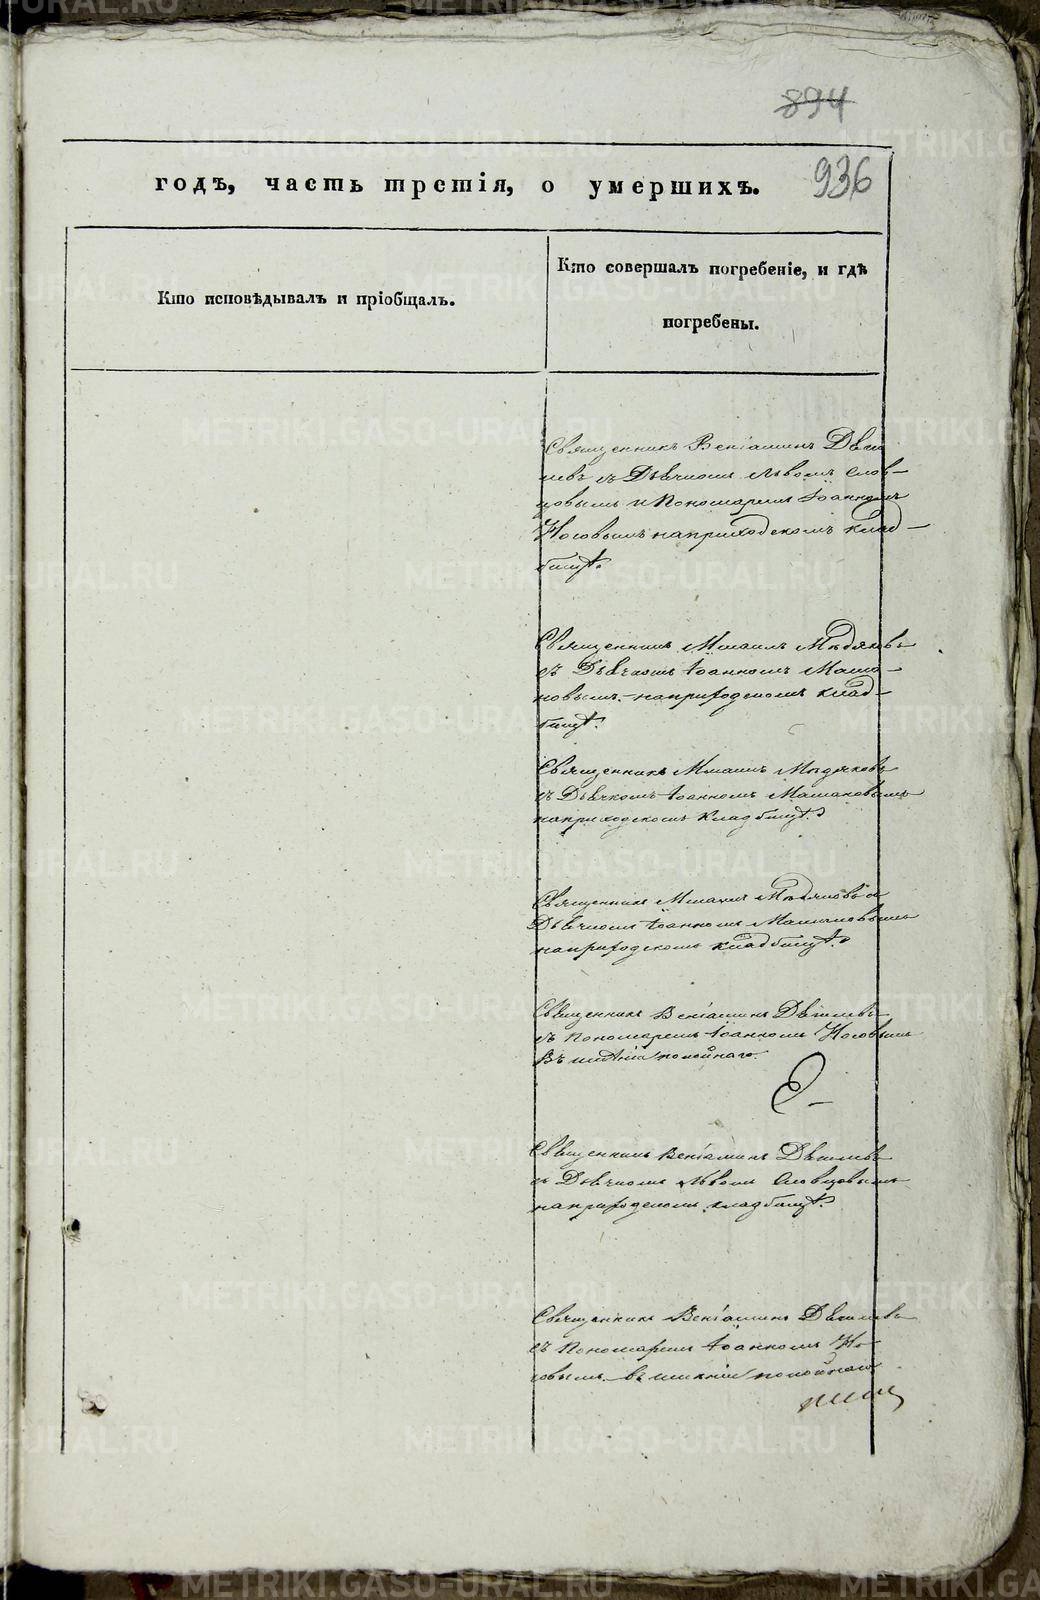 894
936
годъ, часть третія, о умершихъ.
Кто исповѣдывалъ и пріобщалъ.
Кто совершалъ погребеніе, и гдѣ
погребены.
Священникъ Веніаминъ
съ Дьячкомъ Львомъ Слов-
цовымъ и Пономаремъ Іоанномъ
Носовымъ на приходскомъ клад-
бищѣ.
Священникъ Михаилъ Мѣдяковъ
съ Дьячкомъ Іоанномъ Мама-
новымъ на приходскомъ клад-
бищѣ.
Священникъ Михаилъ Мѣдяковъ
съ Дьячкомъ Іоанномъ
на приходскомъ кладбищѣ.
Священникъ Михаилъ Мѣдяковъ съ
Дьячкомъ Іоанномъ
на приходскомъ кладбищѣ.
Священникъ Веніаминъ
съ Пономаремъ Іоанномъ Носовымъ
въ имѣніи покойнаго.
Священникъ Веніаминъ
съ Дьячкомъ Львомъ Словцовымъ
на приходскомъ кладбищѣ.
Священникъ Веніаминъ
съ Пономаремъ Іоанномъ Но-
совымъ въ имѣніи покойнаго
METRIKI.GASO-URAL.RU